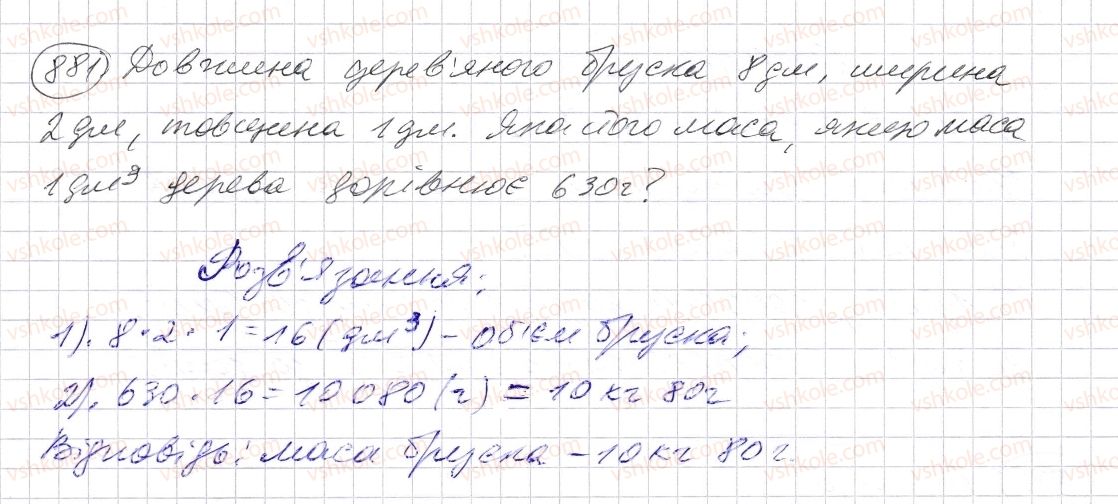 881) Довжина дерев'яного бруска 8 дм, ширина
2 дм, товщина 1 дм. Яка його маса, якщо маса
1 дм³ дерева дорівнює 630 г?
Розв'язання:
1). 8 · 2 · 1 = 16 (дм³) – об'єм бруска;
2). 630 · 16 = 10 080 (г) = 10 кг 80 г
Відповідь: маса бруска – 10 кг 80 г.